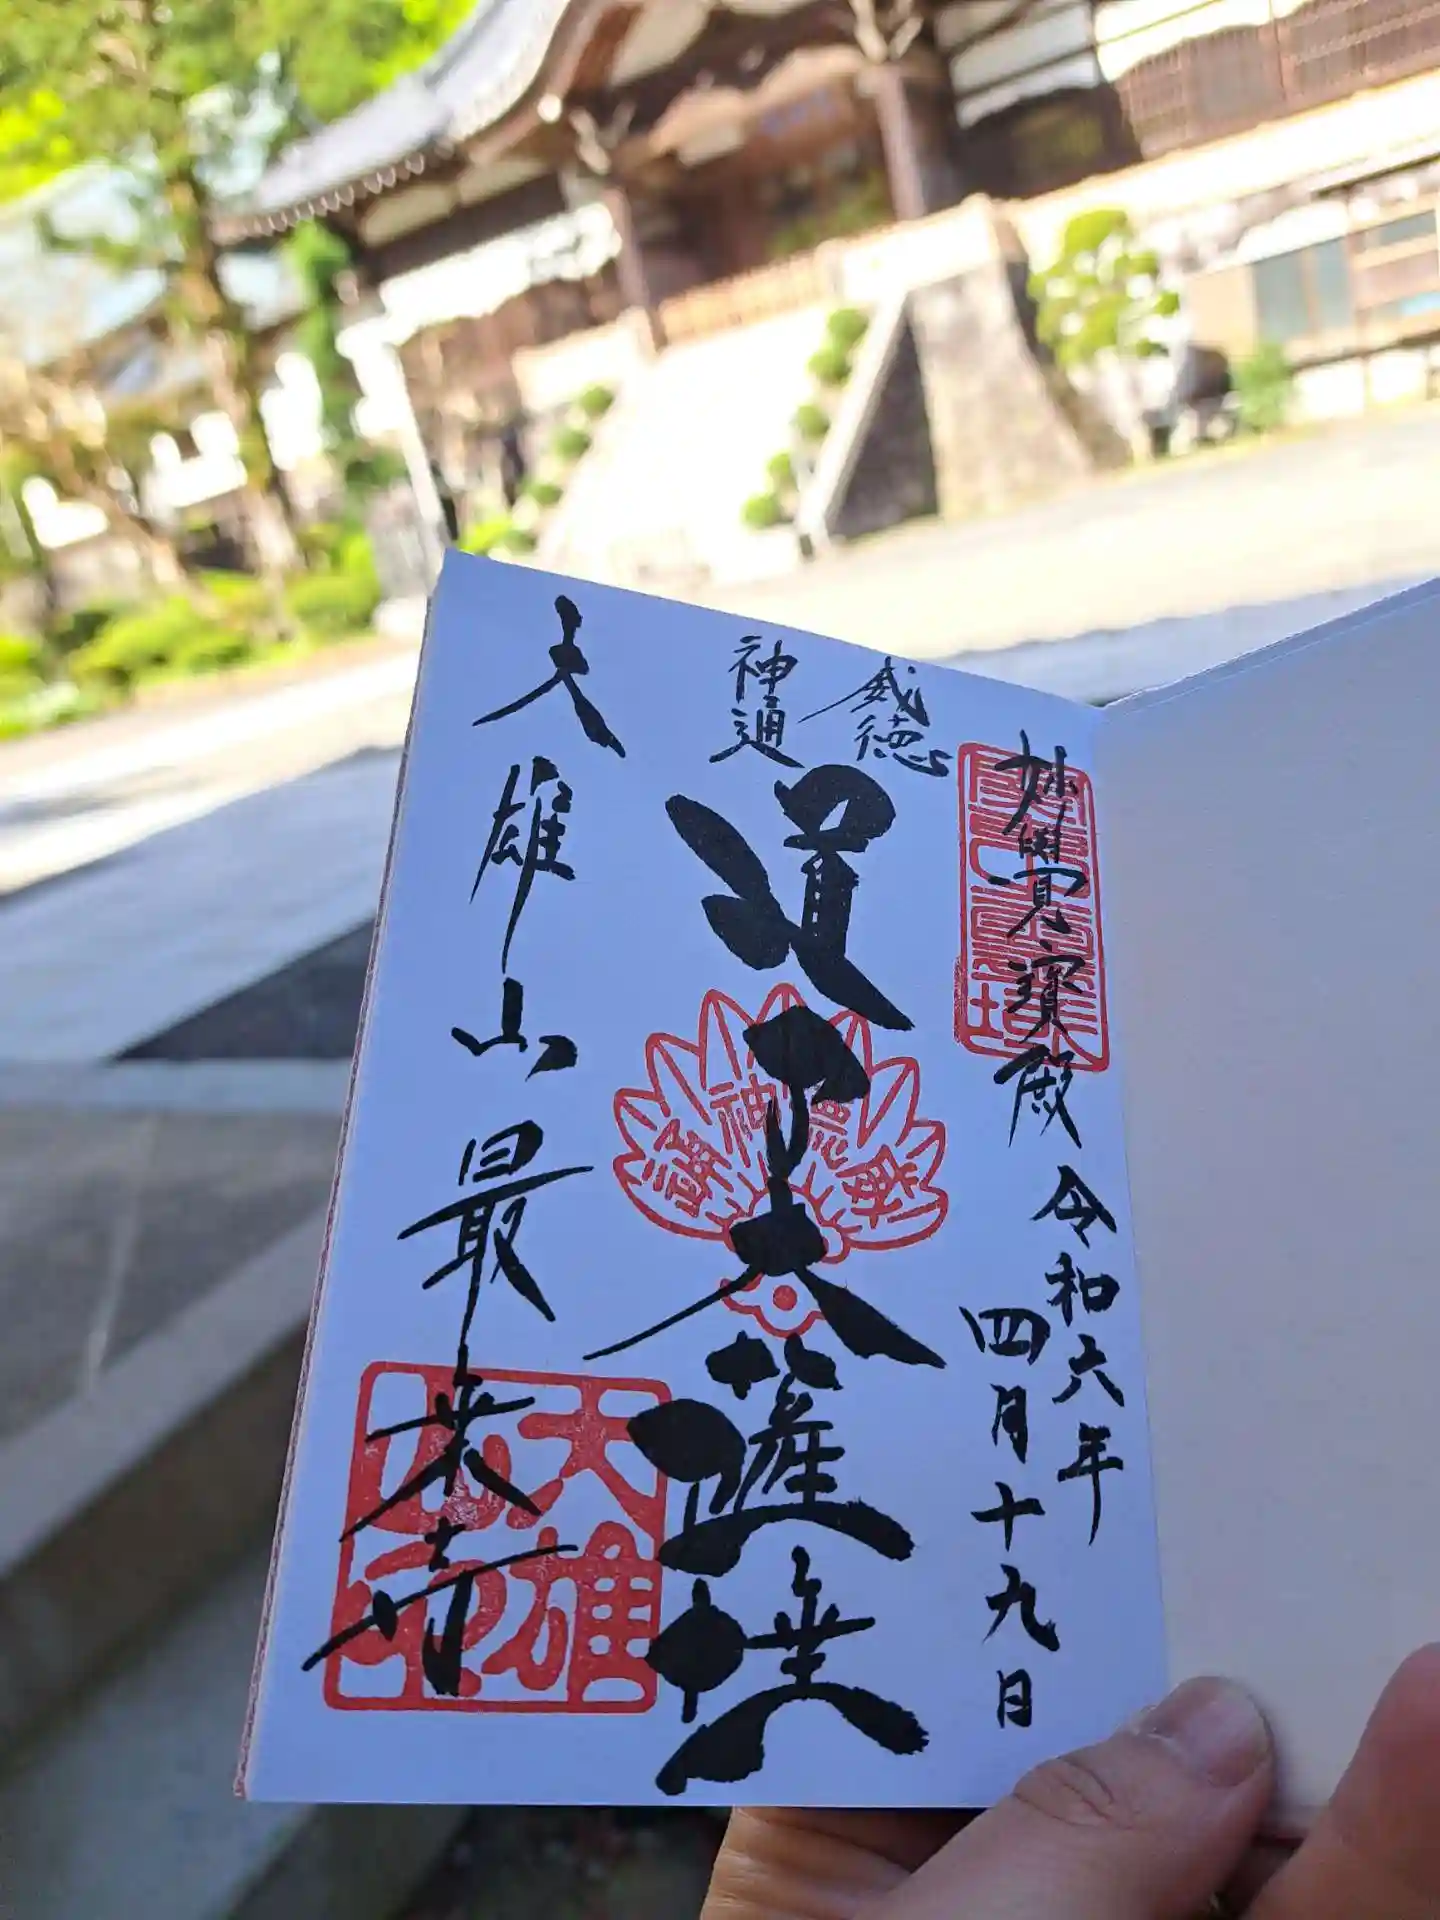 妙覚寶殿
令和六年
四月十九日
威徳
神通
道了大薩埵
大雄山最乗寺
威徳神通
大雄山印